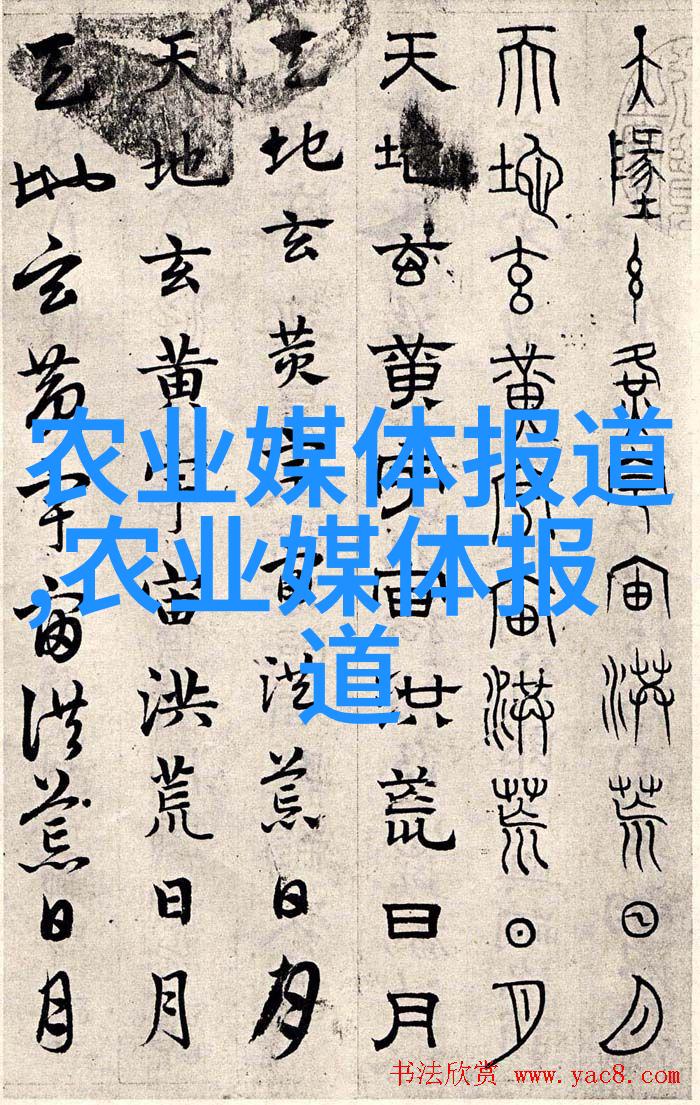 天墬玄黃宇宙洪荒日月
天地玄黃宇宙洪荒日月
天地玄黃宇宙洪荒日月
天地玄黃宇宙洪荒日月
天地玄黃宇宙洪荒日月
天地玄黃宇宙洪荒日月
农业媒体报道
,农业媒体报
道
书法欣赏 www.yac8.com